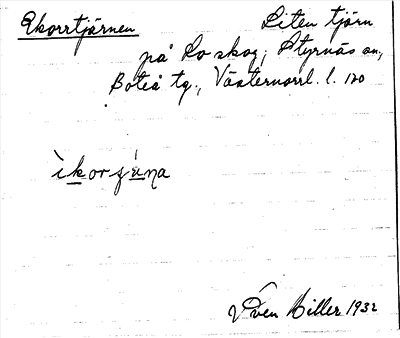 Ekorrtjärnen Liten tjärn
på Lo skog, Styrnäs sn,
Boteå tg., Västernorrl. l. 120
ìkorʂä̀ṇa
Sven Hiller 1932